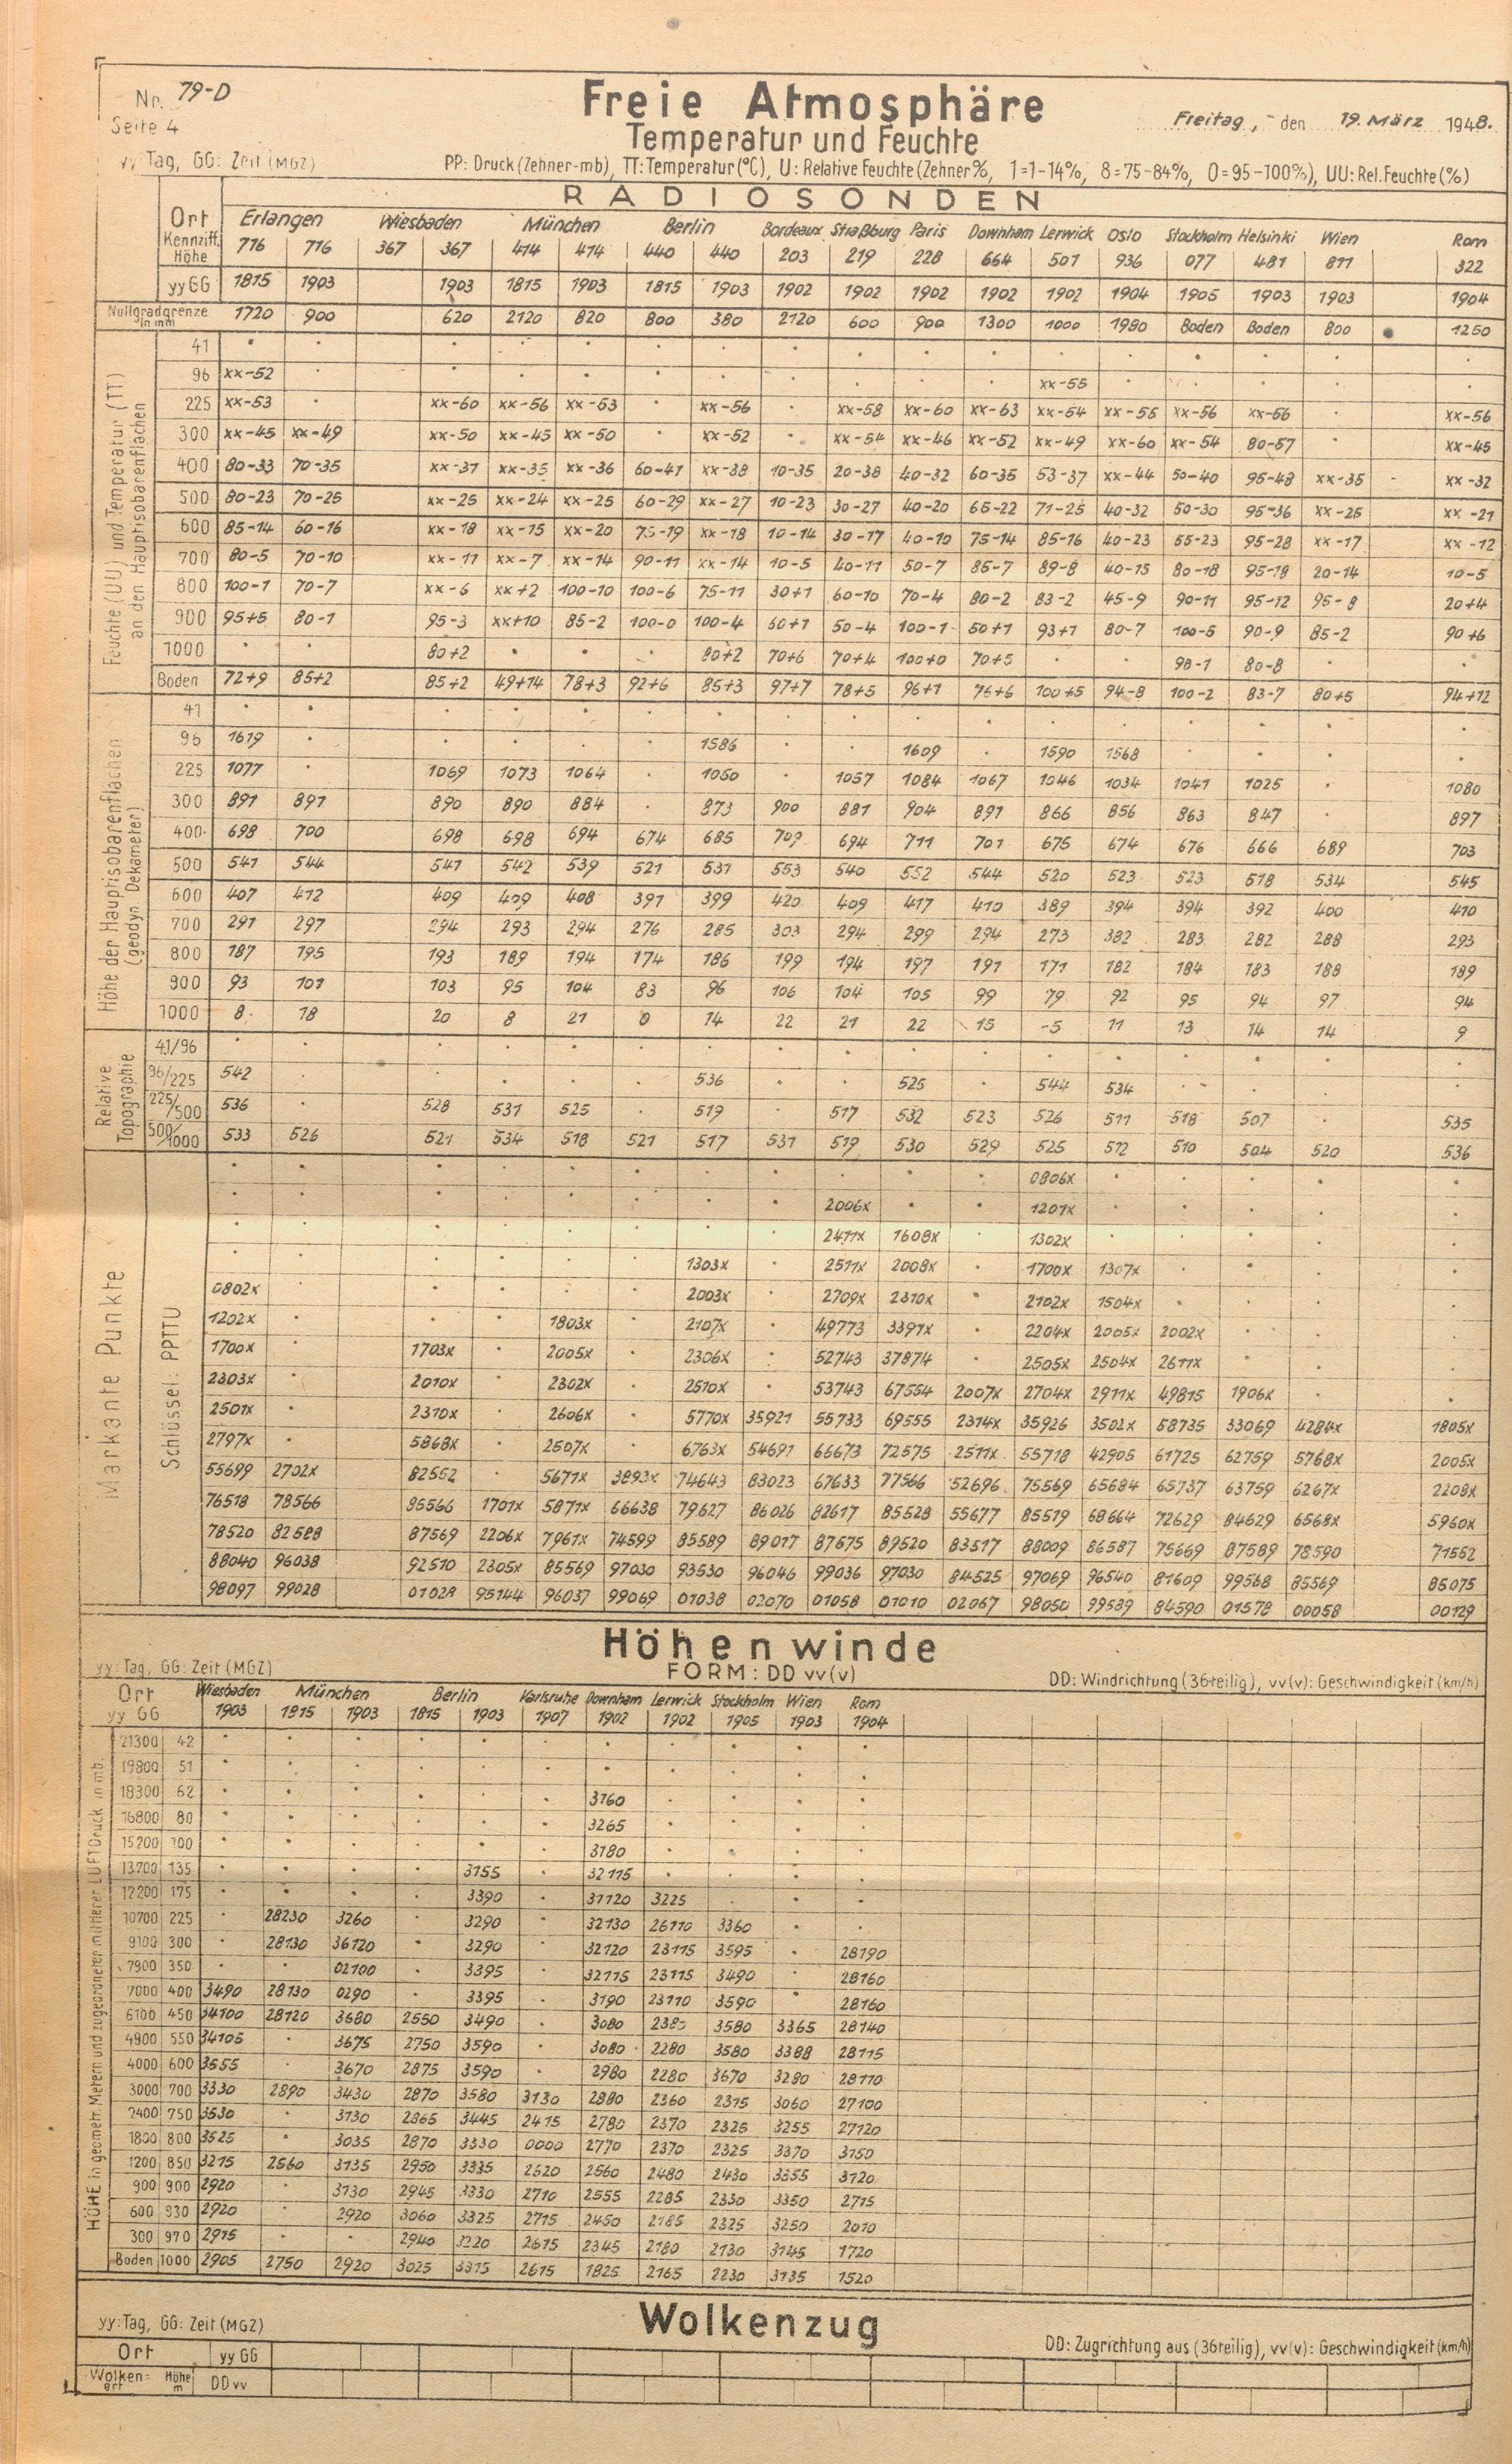 Nr. 79-D
Seite 4
Freie Atmosphäre
Temperatur und Feuchte
Freitag, den 19. März 1948.
yy: Tag, GG: Zeit (MGZ)
PP: Druck (Zehner-mb), TT: Temperatur (°C), U: Relative Feuchte (Zehner %, 1=1-14%, 8=75-84%, 0=95-100%), UU: Rel. Feuchte (%)
RADIOSONDEN
Ort Erlangen Wiesbaden München Berlin Bordeaux Straßburg Paris Downham Lerwick Oslo Stockholm Helsinki Wien Rom
Kennziff. 716 716 367 367 414 414 440 440 203 219 228 664 501 936 077 481 811 322
Höhe
yy GG 1815 1903 1903 1815 1903 1815 1903 1902 1902 1902 1902 1902 1904 1905 1903 1903 1904
Nullgradgrenze in mm 1720 900 620 2120 820 800 380 2120 600 900 1300 1000 1980 Boden Boden 800 1250
Feuchte (UU) und Temperatur (TT) an den Hauptisobarenflächen
41
96 xx-52 xx-55
225 xx-53 xx-60 xx-56 xx-53 xx-56 xx-58 xx-60 xx-63 xx-54 xx-55 xx-56 xx-56 xx-56
300 xx-45 xx-49 xx-50 xx-45 xx-50 xx-52 xx-54 xx-46 xx-52 xx-49 xx-60 xx-54 80-57 xx-45
400 80-33 70-35 xx-37 xx-35 xx-36 60-41 xx-38 10-35 20-38 40-32 60-35 53-37 xx-44 50-40 95-48 xx-35 xx-32
500 80-23 70-25 xx-25 xx-24 xx-25 60-29 xx-27 10-23 30-27 40-20 65-22 71-25 40-32 50-30 95-36 xx-25 xx-21
600 85-14 60-16 xx-18 xx-15 xx-20 75-19 xx-18 10-14 30-17 40-10 75-14 85-16 40-23 55-23 95-28 xx-17 xx-12
700 80-5 70-10 xx-11 xx-7 xx-14 90-11 xx-14 10-5 40-11 50-7 85-7 89-8 40-15 80-18 95-19 20-14 10-5
800 100-1 70-7 xx-6 xx+2 100-10 100-6 75-11 30+1 60-10 70-4 80-2 83-2 45-9 90-11 95-12 95-8 20+4
900 95+5 80-1 95-3 xx+10 85-2 100-0 100-4 60+1 50-4 100-1 50+1 93+1 80-7 100-5 90-9 85-2 90+6
1000 80+2 80+2 70+6 70+4 100+0 70+5 98-1 80-8
Boden 72+9 85+2 85+2 49+14 78+3 92+6 85+3 97+7 78+5 96+1 76+6 100+5 94-8 100-2 83-7 80+5 94+12
Höhe der Hauptisobarenflächen (geodyn. Dekameter)
41
96 1619 1586 1609 1590 1568
225 1077 1069 1073 1064 1050 1057 1084 1067 1046 1034 1041 1025 1080
300 891 897 890 890 884 873 900 881 904 891 866 856 863 847 897
400 698 700 698 698 694 674 685 709 694 711 701 675 674 676 666 689 703
500 541 544 541 542 539 521 531 553 540 552 544 520 523 523 518 534 545
600 407 412 409 409 408 391 399 420 409 417 410 389 394 394 392 400 410
700 291 297 294 293 294 276 285 303 294 299 294 273 382 283 282 288 293
800 187 195 193 189 194 174 186 199 194 197 191 171 182 184 183 188 189
900 93 101 103 95 104 83 96 106 104 105 99 79 92 95 94 97 94
1000 8 18 20 8 21 0 14 22 21 22 15 -5 11 13 14 14 9
Relative Topographie
41/96
96/225 542 536 525 544 534
225/500 536 528 531 525 519 517 532 523 526 511 518 507 535
500/1000 533 526 521 534 518 521 517 531 519 530 529 525 512 510 504 520 536
Markante Punkte
Schlüssel: PPTTU
0806x
2006x 1201x
2411x 1608x 1302x
1303x 2511x 2008x 1700x 1307x
0802x 2003x 2709x 2310x 2102x 1504x
1202x 1803x 2107x 49773 3391x 2204x 2005x 2002x
1700x 1703x 2005x 2306x 52743 37874 2505x 2504x 2611x
2303x 2010x 2302x 2510x 53743 67554 2007x 2704x 2911x 49815 1906x
2501x 2310x 2606x 5770x 35921 55733 69555 2314x 35926 3502x 58735 33069 4284x 1805x
2797x 5868x 2507x 6763x 54691 66673 72575 2511x 55718 42905 61725 62759 5768x 2005x
55699 2702x 82552 5671x 3893x 74643 83023 67633 77566 52696 75569 65684 65737 63759 6267x 2208x
76518 78566 85566 1701x 5871x 66638 79627 86026 82617 85528 55677 85519 68664 72629 84629 6568x 5960x
78520 82588 87569 2206x 7961x 74599 85589 89017 87575 89520 83517 88009 86587 75669 87589 78590 71552
88040 96038 92510 2305x 85569 97030 93530 96046 99036 97030 84525 97069 96540 81609 99568 85569 85075
98097 99028 01028 95144 96037 99069 01038 02070 01058 01010 02067 98050 99589 84590 01578 00058 00129
Höhenwinde
yy: Tag, GG: Zeit (MGZ)
FORM: DD vv(v)
DD: Windrichtung (36teilig), vv(v): Geschwindigkeit (km/h)
Ort Wiesbaden München Berlin Karlsruhe Downham Lerwick Stockholm Wien Rom
yy GG 1903 1815 1903 1815 1903 1907 1902 1902 1905 1903 1904
HÖHE in geometr. Metern und zugeordneter mittlerer LUFTDruck in mb.
21300 42
19800 51
18300 62 3160
16800 80 3265
15200 100 3180
13700 135 3155 32115
12200 175 3390 31120 3225
10700 225 28230 3260 3290 32130 26110 3360
9100 300 28130 36120 3290 32120 23115 3595 28190
7900 350 02100 3395 32115 23115 3490 28160
7000 400 3490 28130 0290 3395 3190 23110 3590 28160
6100 450 34100 28120 3680 2550 3490 3080 3580 3365 28140
4900 550 34105 3675 2750 3590 3080 2280 3580 3388 28115
4000 600 3555 3670 2875 3590 2980 2280 3670 3290 28110
3000 700 3330 2890 3430 2870 3580 3130 2880 2360 2315 3060 27100
2400 750 3530 3130 2865 3445 2415 2780 2370 2325 3255 27120
1800 800 3525 3035 2870 3330 0000 2770 2370 2325 3370 3150
1200 850 3215 2560 3135 2950 3335 2520 2560 2480 2430 3355 3120
900 900 2920 3130 2945 3330 2710 2555 2285 2330 3350 2715
600 930 2920 2920 3060 3325 2715 2450 2185 2325 3250 2010
300 970 2915 2940 3220 2615 2345 2180 2130 3145 1720
Boden 1000 2905 2750 2920 3025 3315 2615 1825 2165 2230 3135 1520
Wolkenzug
yy: Tag, GG: Zeit (MGZ)
DD: Zugrichtung aus (36teilig), vv(v): Geschwindigkeit (km/h)
Ort yy GG
Wolken=art Höhe m DD vv